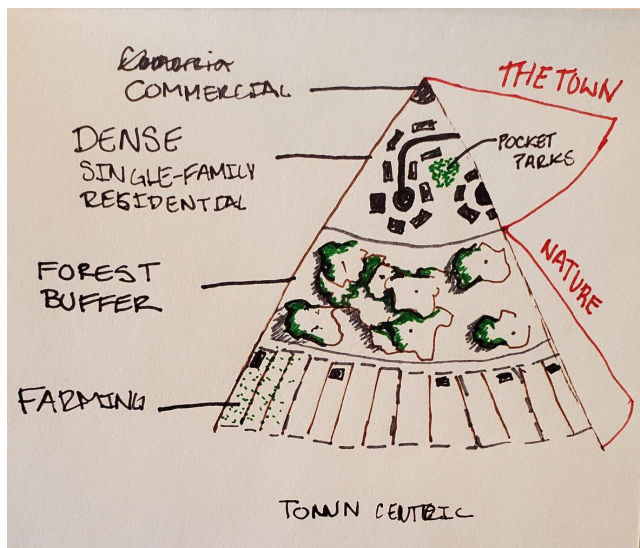 COMMERCIAL
THE TOWN
DENSE
SINGLE-FAMILY
RESIDENTIAL
POCKET
PARKS
FOREST
BUFFER
NATURE
FARMING
TOWN CENTRIC